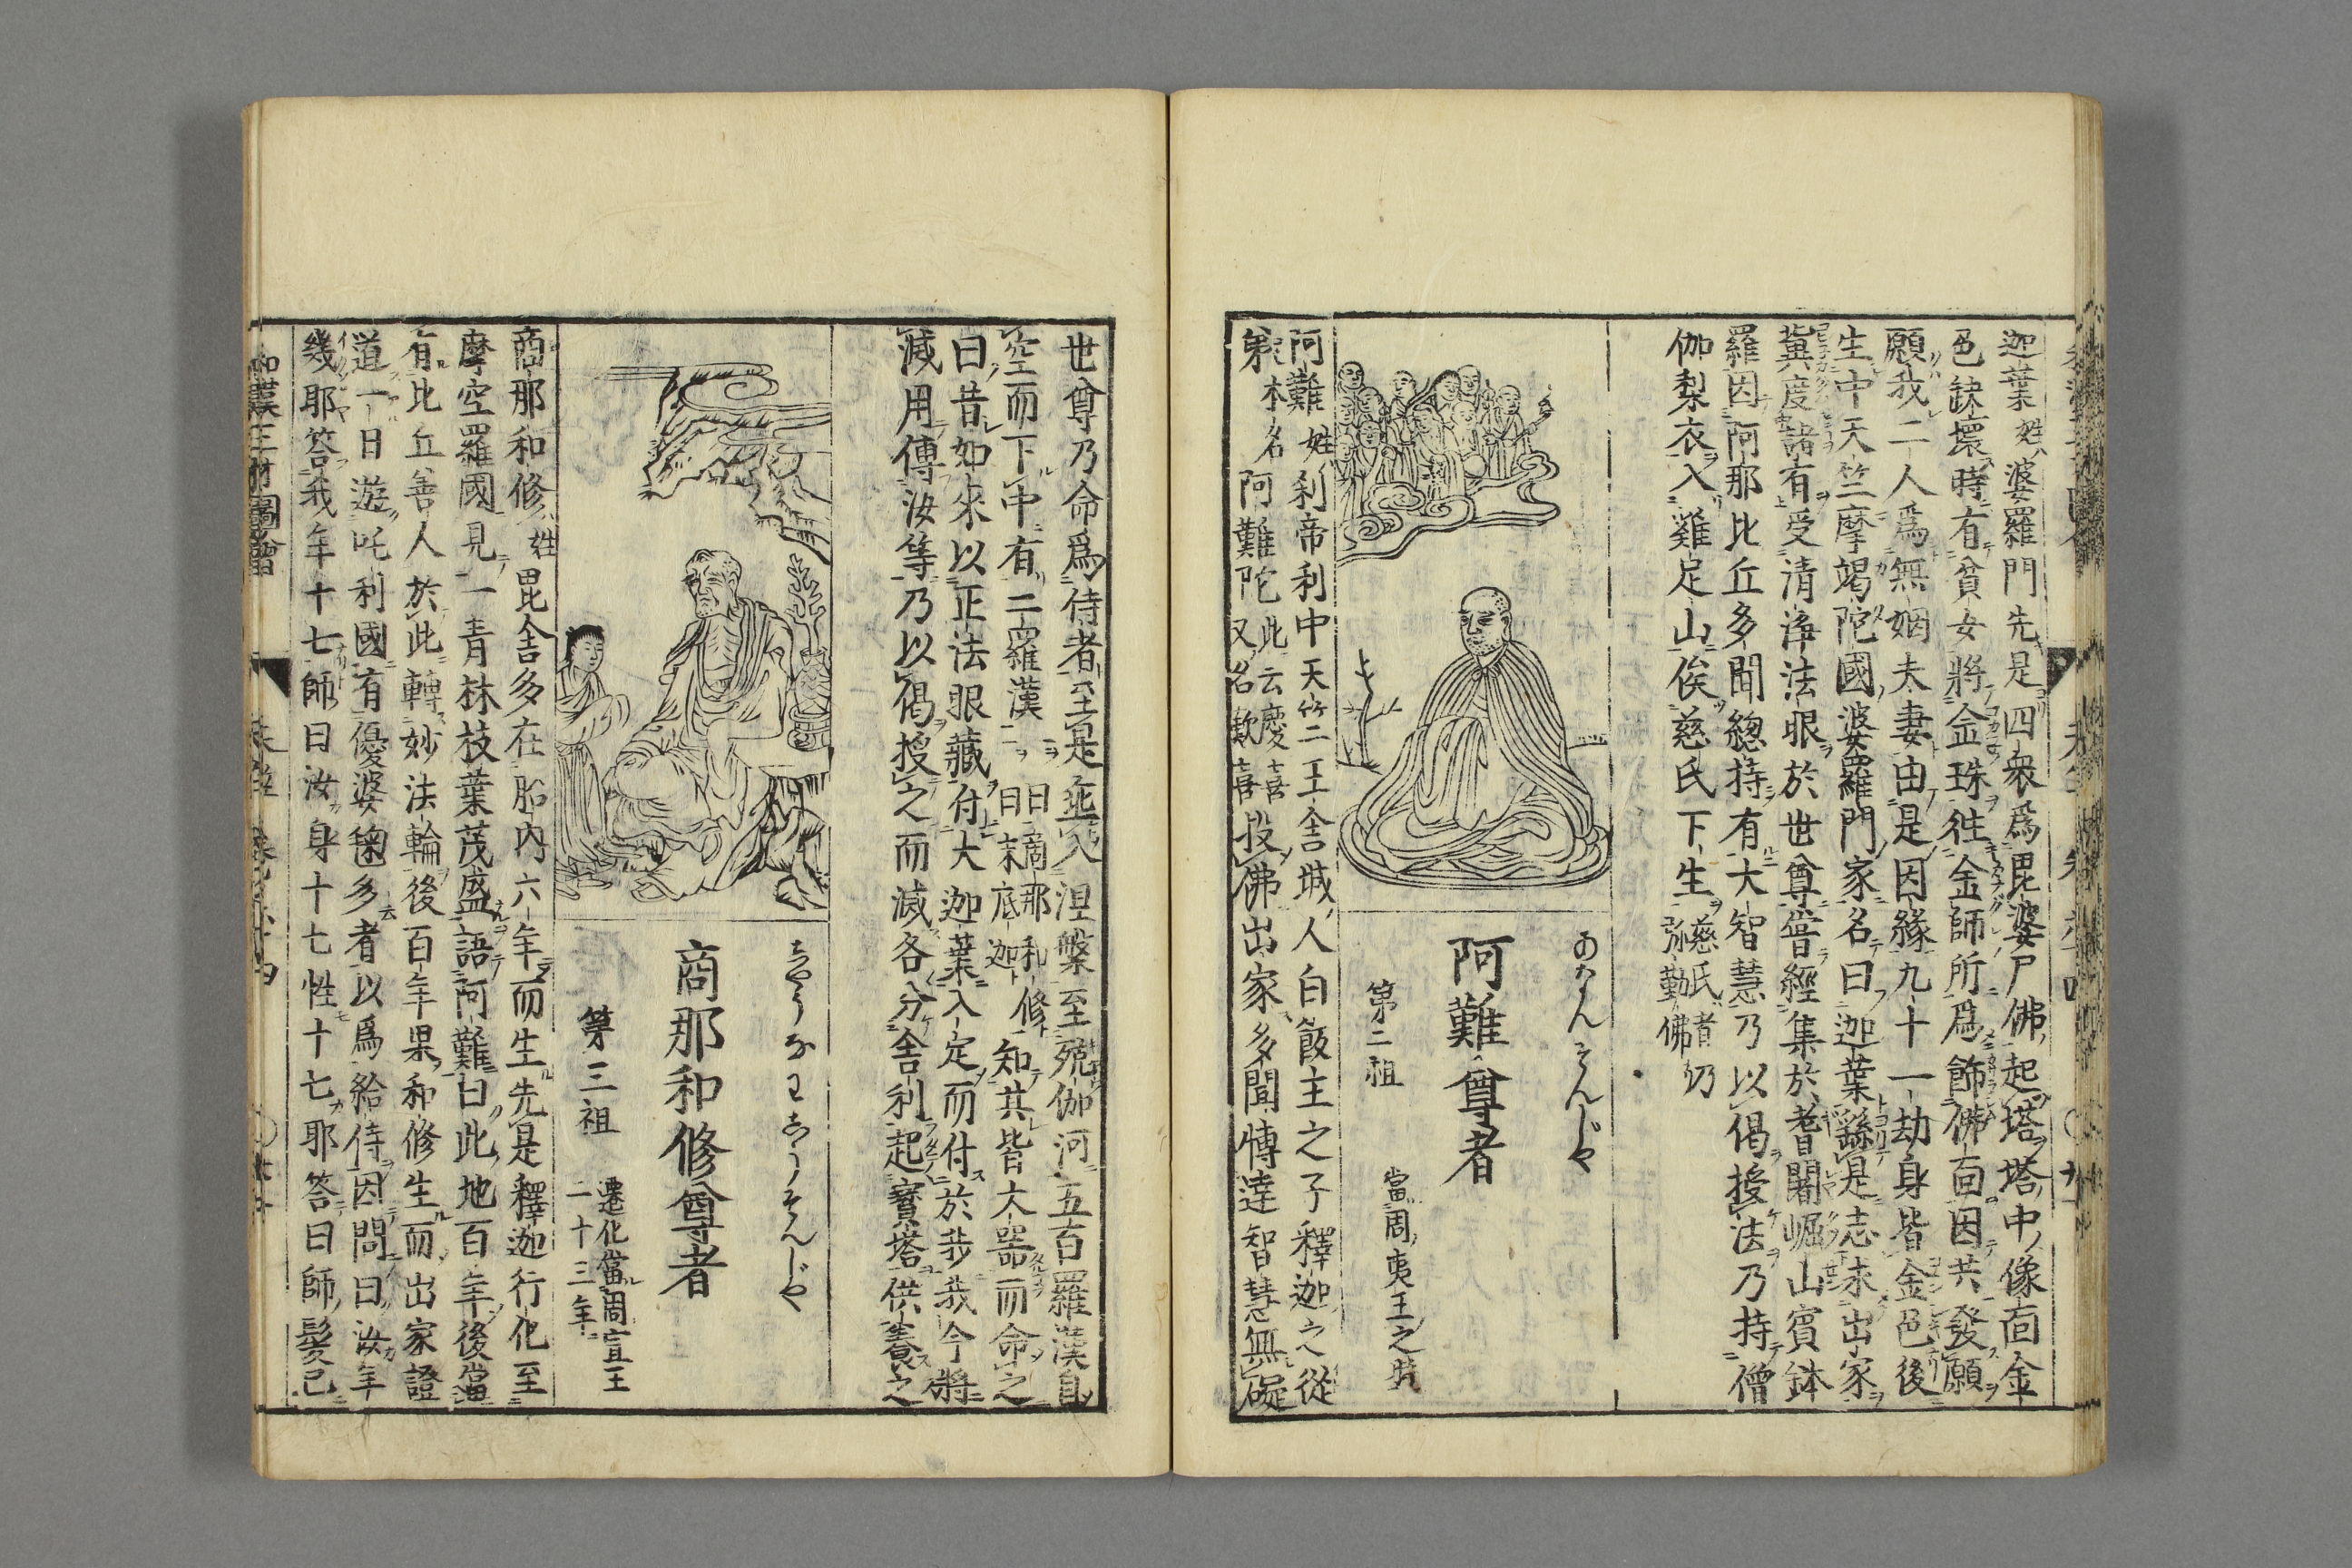 迦葉姓婆羅門先是四衆爲毘婆尸佛起塔塔中像面金
色缺壞時有貧女將金珠徃金師所爲飾佛面因共發願
願我二人爲無姻夫妻由是因緣九十一劫身皆金色後
生中天竺摩竭陀國婆羅門家名曰迦葉繇是志求出家
冀度諸有受清淨法眼於世尊嘗經集於耆闍崛山賓鉢
羅因阿那比丘多聞緫持有大智慧乃以偈授法乃持僧
伽梨衣入雞足山俟慈氏下生慈氏者乃
弥勤佛
あなんそんじや
阿難尊者
第二祖
當周夷王之時
阿難姓利帝利中天竺王舎城人白飯王之子釋迦之從
弟本名阿難陀此云慶喜
又名歓喜投佛出家多聞愽達智慧無礙
世尊乃命爲侍者至是亟入涅槃至殑伽河五百羅漢自
空而下中有二羅漢一曰商那和修
二曰末底迦知其皆大器而命之
曰昔如來以正法眼藏付大迦葉入定而付於我我今將
滅用傳汝等乃以偈授之而滅各分舎利起寳塔供養之
しやうなわしうそんじや
商那和修尊者
第三祖
遷化當周宣王
二十三年
商那和修姓毘舎多在胎内六年而生先是釋迦行化至
摩空羅國見一青林枝葉茂盛語阿難曰此地百年後當
有比丘善人於此轉妙法輪後百年果和修生而出家證
道一日遊吒利國有優婆毱多者以爲給侍因問曰汝年
幾耶答我年十七師曰汝身十七性十七耶答曰師髮已
和漢三才圖會